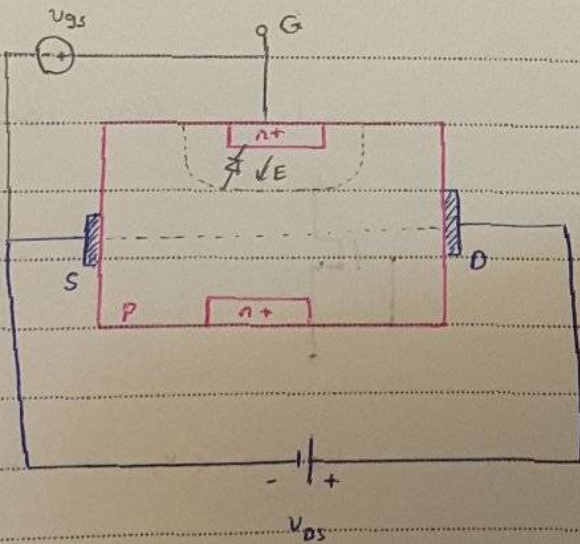 Vgs
- +
G
n+
E
S
D
P
n+
- +
VDS